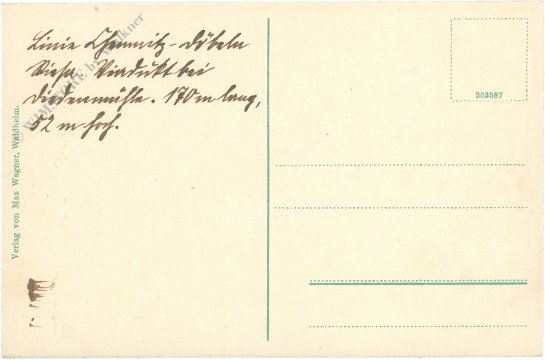 Linie Chemnitz-Döbeln
Riesa. Viadukt bei
Diedenmühle. 170 m lang,
52 m hoch.
Verlag von Max Wagner, Waldheim.
203587